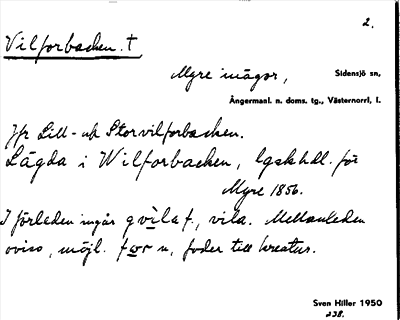 2.
Vilforbacken. †
Myre inägor, Sidensjö sn,
Ångermanl. n. doms. tg., Västernorrl, l.
Jfr Lill- och Storvilforbacken.
Lägda i Wilforbacken, lgskhdl. för
Myre 1856.
I förleden ingår gvila f., vila. Mellanleden
oviss, möjl. for n, foder till kreatur.
Sven Hiller 1950
238.